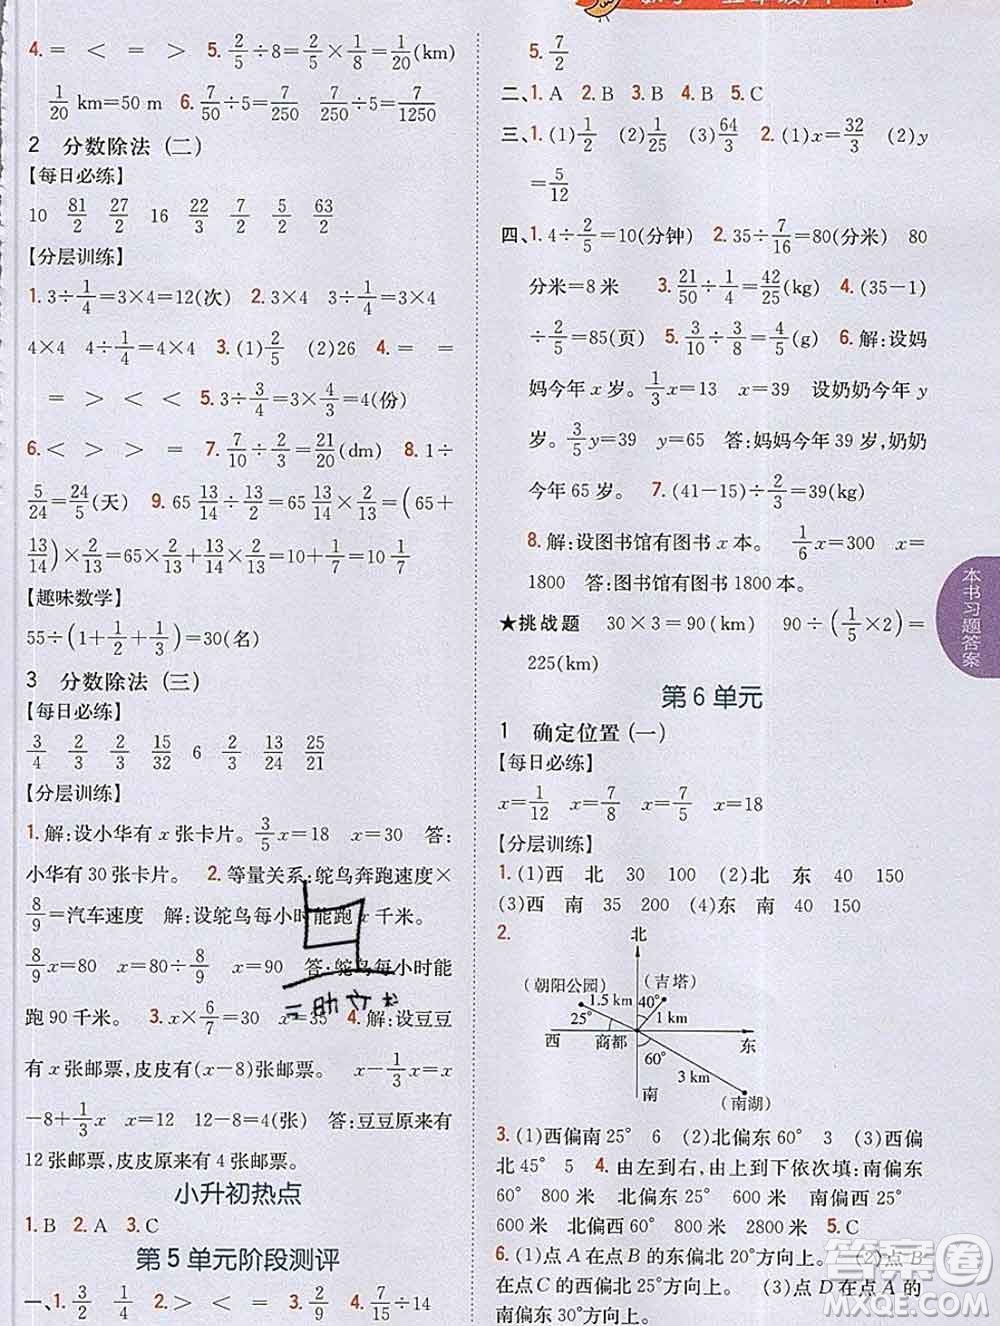 4. = < = > 5. 2/5÷8=2/5×1/8=1/20(km)
1/20 km=50 m 6. 7/50÷5 7/250÷5=7/1250
2 分数除法(二)
【每日必练】
10 81/2 27/2 16 22/3 7/2 5/2 63/2
【分层训练】
1. 3÷1/4=3×4=12(次) 2. 3×4 3÷1/4=3×4
4×4 4÷1/4=4×4 3. (1)2/5 (2)26 4. = =
= > < < 5. 3÷3/4=3×4/3=4(份)
6. < > > = 7. 7/10÷2/3=21/20(dm) 8. 1÷
5/24=24/5(天) 9. 65 13/14÷13/14=(65+
13/14)×14/13=65×14/13+13/14×14/13
【趣味数学】
55÷(1+1/2+1/3)=30(名)
3 分数除法(三)
【每日必练】
3/4 2/3 2/3 15/32 6 2/3 10/33 25/21
【分层训练】
1. 解:设小华有 x 张卡片。3/5x=18 x=30 答:
小华有 30 张卡片。 2. 等量关系:鸵鸟奔跑速度×
8/9=汽车速度 解:设鸵鸟每小时能跑 x 千米。
8/9x=80 x=80÷8/9 x=90 答:鸵鸟每小时能
跑 90 千米。 3. x×6/7=30 x=35 4. 解:设豆豆
有 x 张邮票,皮皮有(x−8)张邮票。 x−1/3x=x
−8+1/3x x=12 12−8=4(张) 答:豆豆原来有
12 张邮票,皮皮原来有 4 张邮票。
小升初热点
1. B 2. A 3. C
第 5 单元阶段测评
一、1. 3/2 1/4 2. > < = 3. 2/9 4. 7/15÷14
5. 7/2
二、1. A 2. B 3. B 4. B 5. C
三、1. (1)1/2 (2)1/6 (3)64/3 2. (1)x=32/3 (2)y
=5/12
四、1. 4÷2/5=10(分钟) 2. 35÷7/16=80(分米) 80
分米=8 米 3. 21/50÷1/4=42/25(kg) 4. (35−1)
÷2/5=85(页) 5. 3/10÷3/8=4/5(g) 6. 解:设妈
妈今年 x 岁。1/3x=13 x=39 设奶奶今年 y
岁。3/5y=39 y=65 答:妈妈今年 39 岁,奶奶
今年 65 岁。 7. (41−15)÷2/3=39(kg)
8. 解:设图书馆有图书 x 本。 1/6x=300 x=
1800 答:图书馆有图书 1800 本。
★挑战题 30×3=90(km) 90÷(1/5×2)=
225(km)
第 6 单元
1 确定位置(一)
【每日必练】
x=1/12 x=7/8 x=7/9 x=18
【分层训练】
1. (1)西 北 30 100 (2)北 东 40 150
(3)西 南 35 200 (4)东 南 40 150
2.
北
(朝阳公园) (吉塔)
1.5 km 40°
25° 1 km
西 商都 东
60°
3 km
南 (南湖)
3. (1)西偏南 25° 6 (2)北偏东 60° 3 (3)西偏
北 45° 5 4. 由左到右,由上到下依次填:南偏东
60° 800 米 北偏西 25° 600 米 南偏东 60°
600 米 北偏西 60° 800 米 2800 米 5. C
6. (1)点 A 在点 B 的东偏北 20°方向上。 (2)点 B
在点 C 的西偏北 25°方向上。 (3)点 D 在点 A 的
南偏东 30°方向上。
本书习题答案
答案圈
MXQE.COM